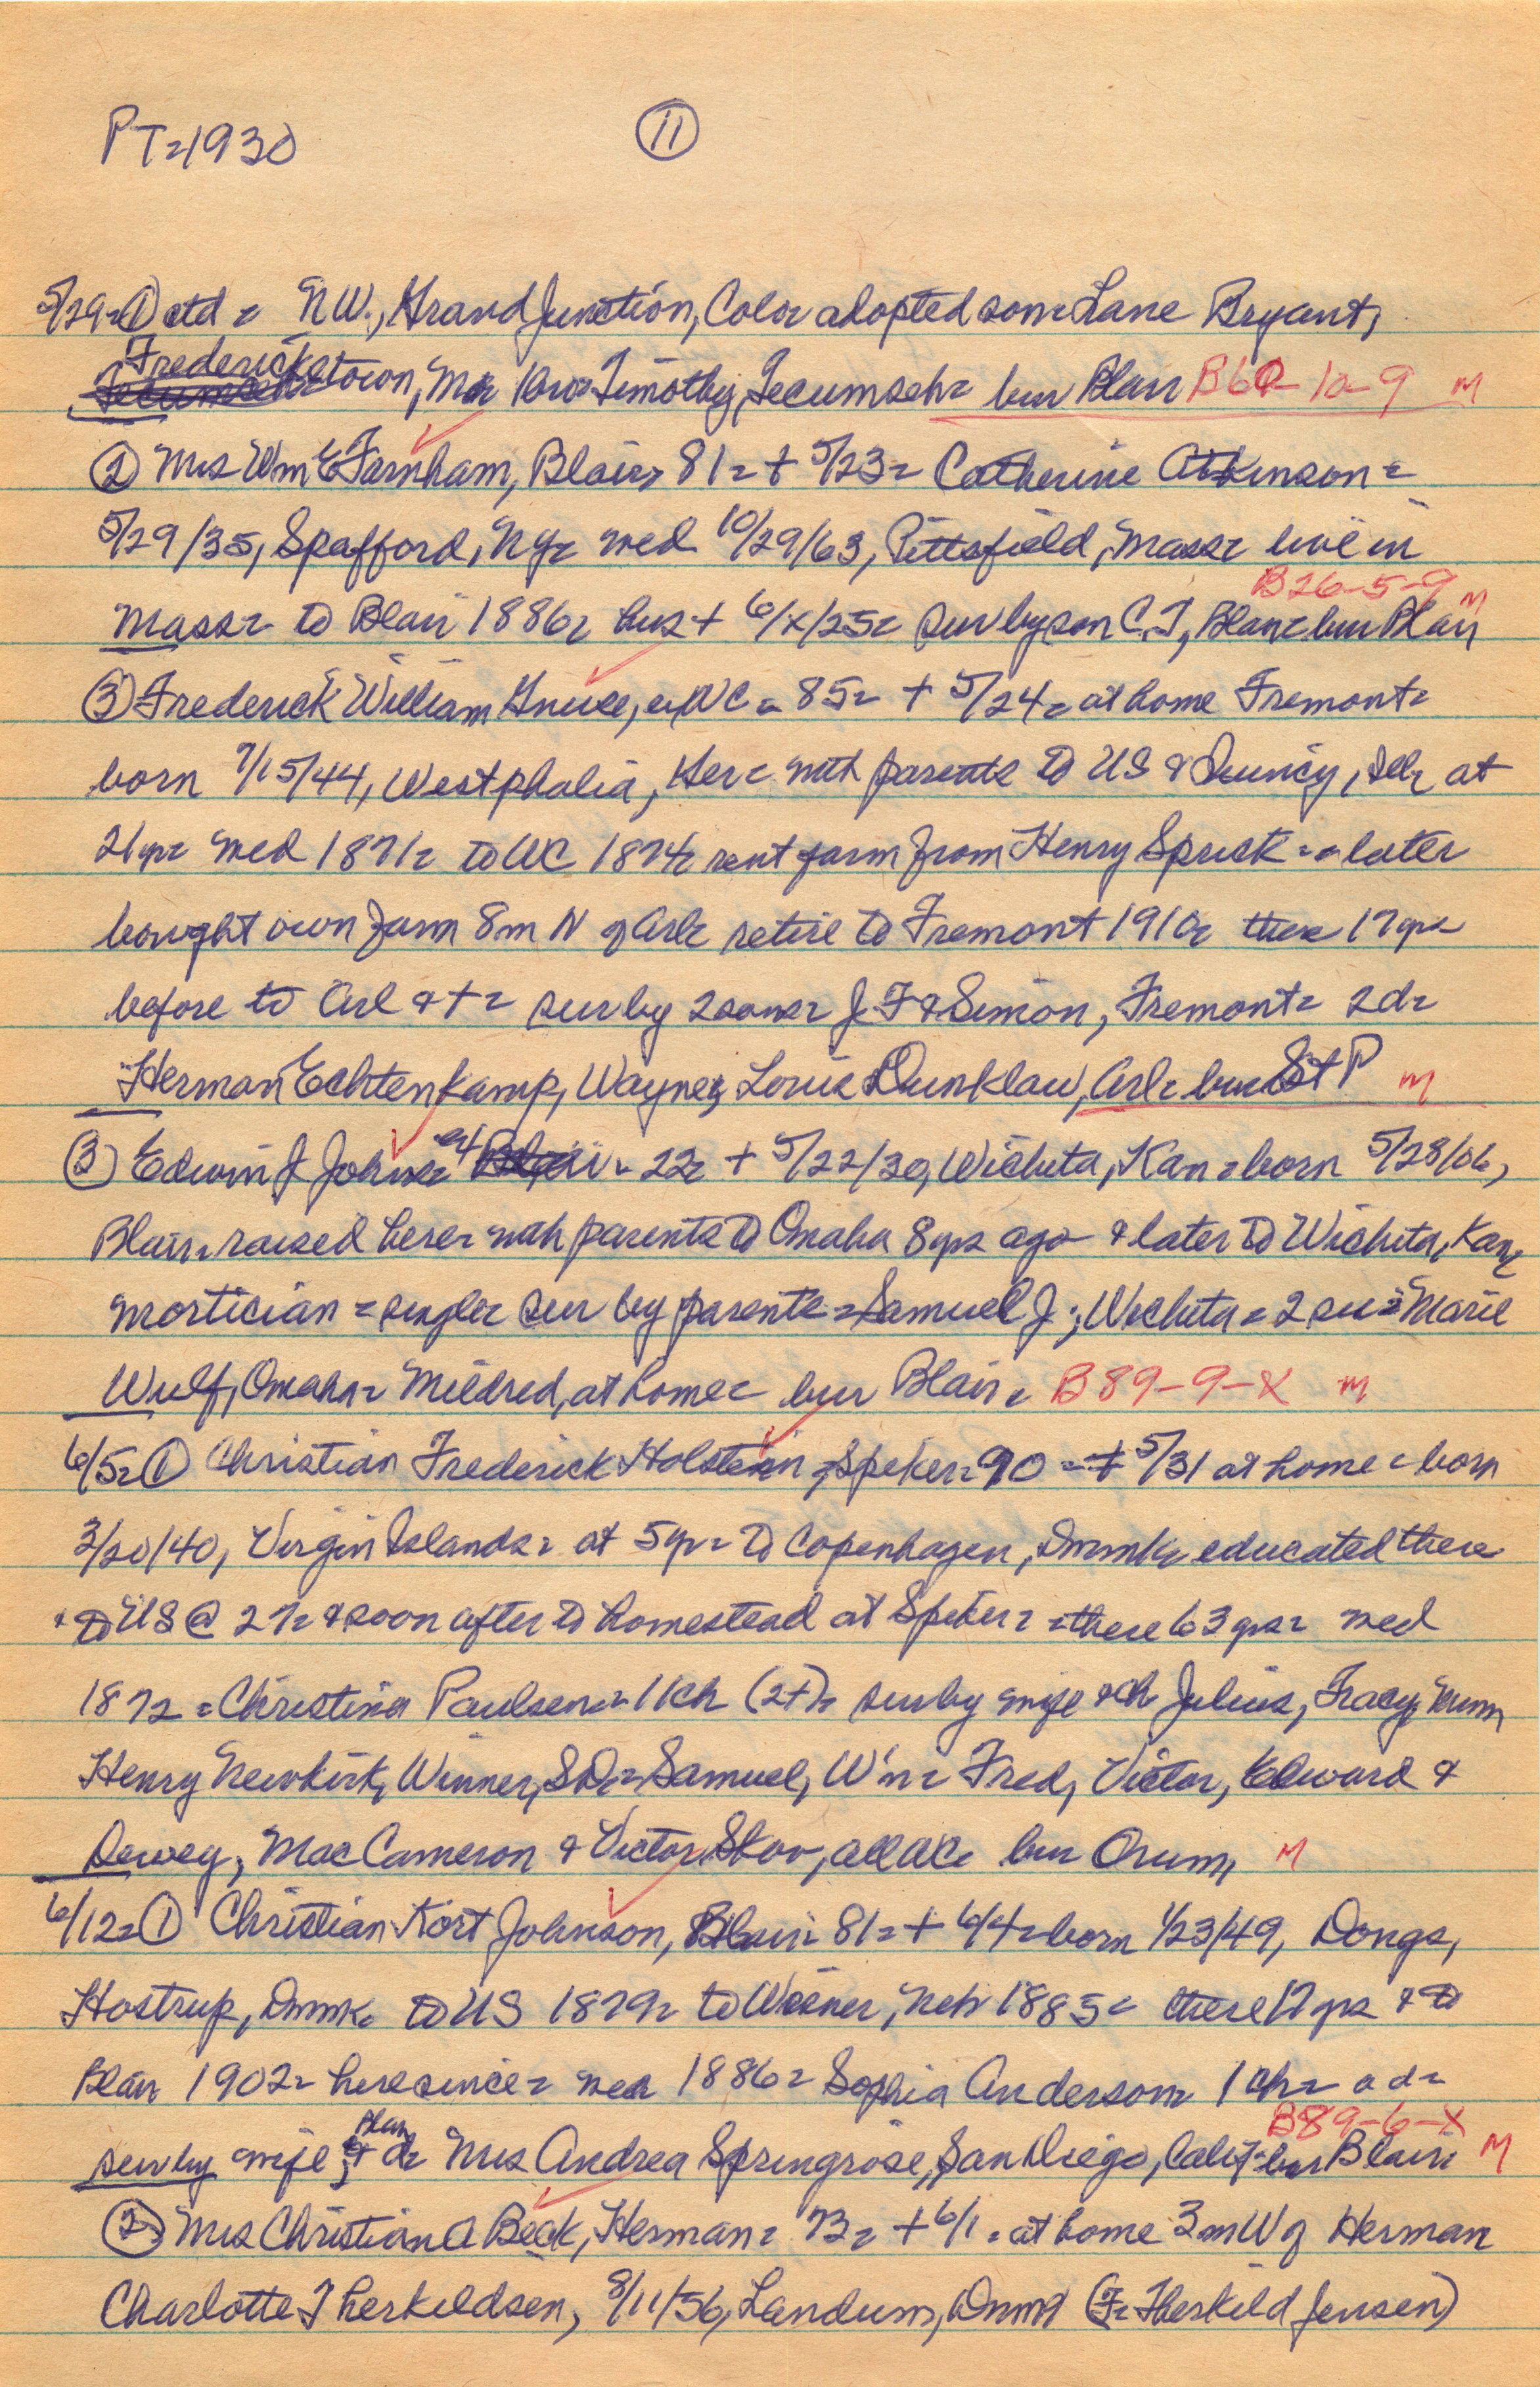 PT=1930
11
5/29=① ctd = N.W., Grand Junction, Colo= adopted son= Lane Bryant,
Fredericks
town, Mo= bro= Timothy, Tecumseh= bur Blair B60-10-9 M
② Mrs Wm E Farnham, Blair, 81= + 5/23= Catherine Atkinson=
5/29/35, Spafford, Ny= wed 10/29/63, Pittsfield, Mass= live in
B26-5-9 M
Mass= to Blair 1886= hus + 6/x/25= sur by son C.T, Blair= bur Blair
③ Frederick William, ex WC = 85= + 5/24= at home Fremont=
born 7/15/44, Westphalia, Ger= with parents to US & Quincy, Ill= at
21 yr= wed 1871= to WC 1874= rent farm from Henry Sprick = = later
bought own farm 8m N of Arl= retire to Fremont 1910= there 17 yrs
before to Arl & += sur by 2 sons= J.F & Simon, Fremont= 2d=
Herman Echtenkamp, Wayne, Louis Dunklau, Arl= bur St P M
③ Edwin J Johnse= ex Blair = 22= + 5/22/30, Wichita, Kan= born 5/28/06,
Blair= raised here= with parents to Omaha 8 yrs ago & later to Wichita, Kan=
mortician = single= sur by parents = Samuel J., Wichita = 2 sis = Marie
Wulf, Omaha= Mildred, at home= bur Blair= B89-9-X M
6/5=① Christian Frederick Holstein, Spiker= 90 = + 5/31 at home = born
3/20/40, Virgin Islands= at 5 yr= to Copenhagen, Dnmk= educated there
& to US @ 27= & soon after to homestead at Spiker= = there 63 yrs= wed
1872 = Christina Paulsen= 11 ch (2+)= sur by wife & ch Julius, Tracy, Minn
Henry Newkirk, Winner, SD= Samuel, Wm= Fred, Victor, Edward &
Dewey, Mac Cameron & Victor Skov, all WC= bur Orum, M
6/12=① Christian Kort Johnson, Blair= 81= + 6/4= born 1/23/49, Donga,
Hostrup, Dnmk= to US 1879= to Wisner, Neb 1885= there 17 yrs & to
Blair 1902= here since= wed 1886= Sophia Anderson= 1 ch= a d=
Blair B89-6-X
sur by wife, & d= Mrs Andrea Springrose, San Diego, Calif= bur Blair= M
② Mrs Christian A Beck, Herman= 73= + 6/1 = at home 3m W of Herman
Charlotte Therkildsen, 8/11/56, Landum, Dnmk (F= Therkild Jensen)